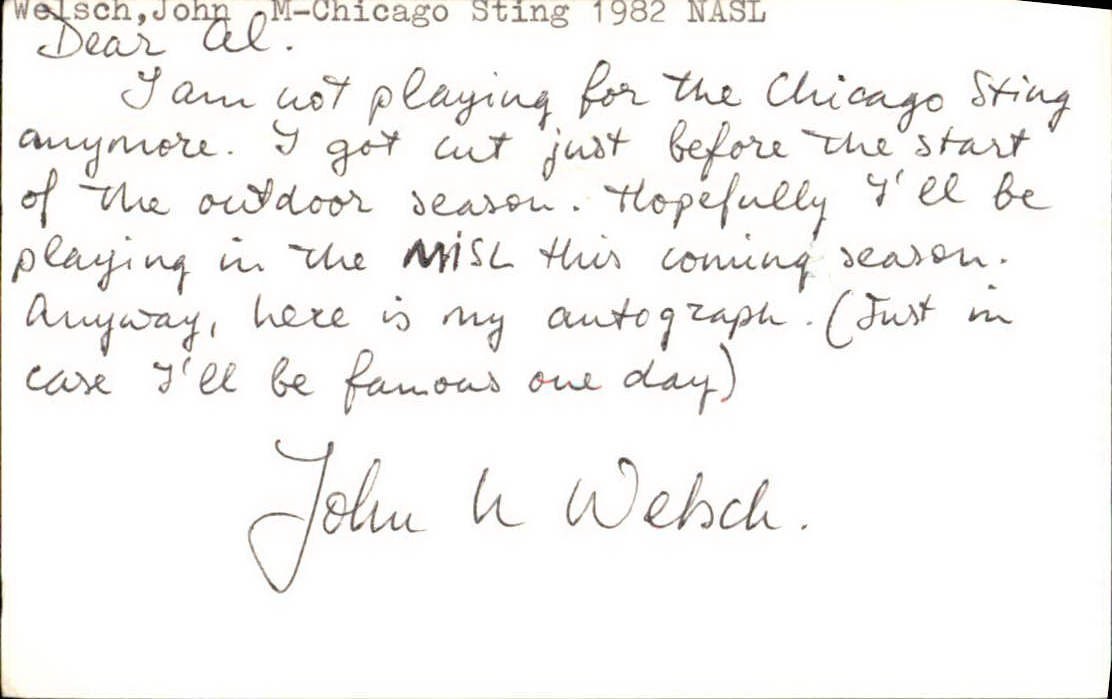 Welsch,John M-Chicago Sting 1982 NASL
Dear Al.
I am not playing for the Chicago Sting
anymore. I got cut just before the start
of the outdoor season. Hopefully I'll be
playing in the MISL this coming season.
Anyway, here is my autograph. (Just in
case I'll be famous one day)
John N Welsch.